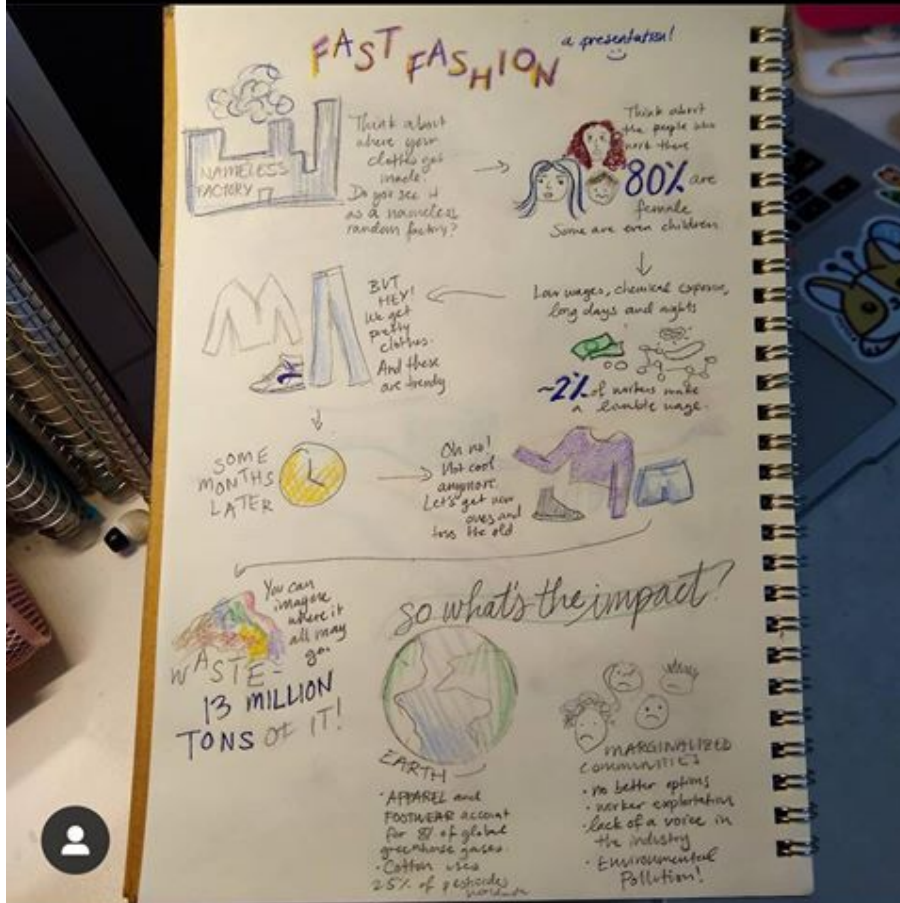 FAST FASHION
a presentation!
NAMELESS
FACTORY
Think about
where your
clothes get
made.
Do you see it
as a nameless
random factory?
Think about
the people who
work there
80% are
female
Some are even children
Low wages, chemical exposure,
long days and nights
~2% of workers make
a livable wage.
BUT
HEY!
We get
pretty
clothes.
And these
are trendy
SOME
MONTHS
LATER
Oh no!
Not cool
anymore.
Let's get new
ones and
toss the old
You can
imagine
where it
all may
go.
WASTE-
13 MILLION
TONS OF IT!
So what's the impact?
EARTH
• APPAREL and
FOOTWEAR account
for 8% of global
greenhouse gases.
• Cotton uses
25% of pesticides
worldwide
MARGINALIZED
COMMUNITIES
• no better options
• worker exploitation
• lack of a voice in
the industry
• Environmental
Pollution!